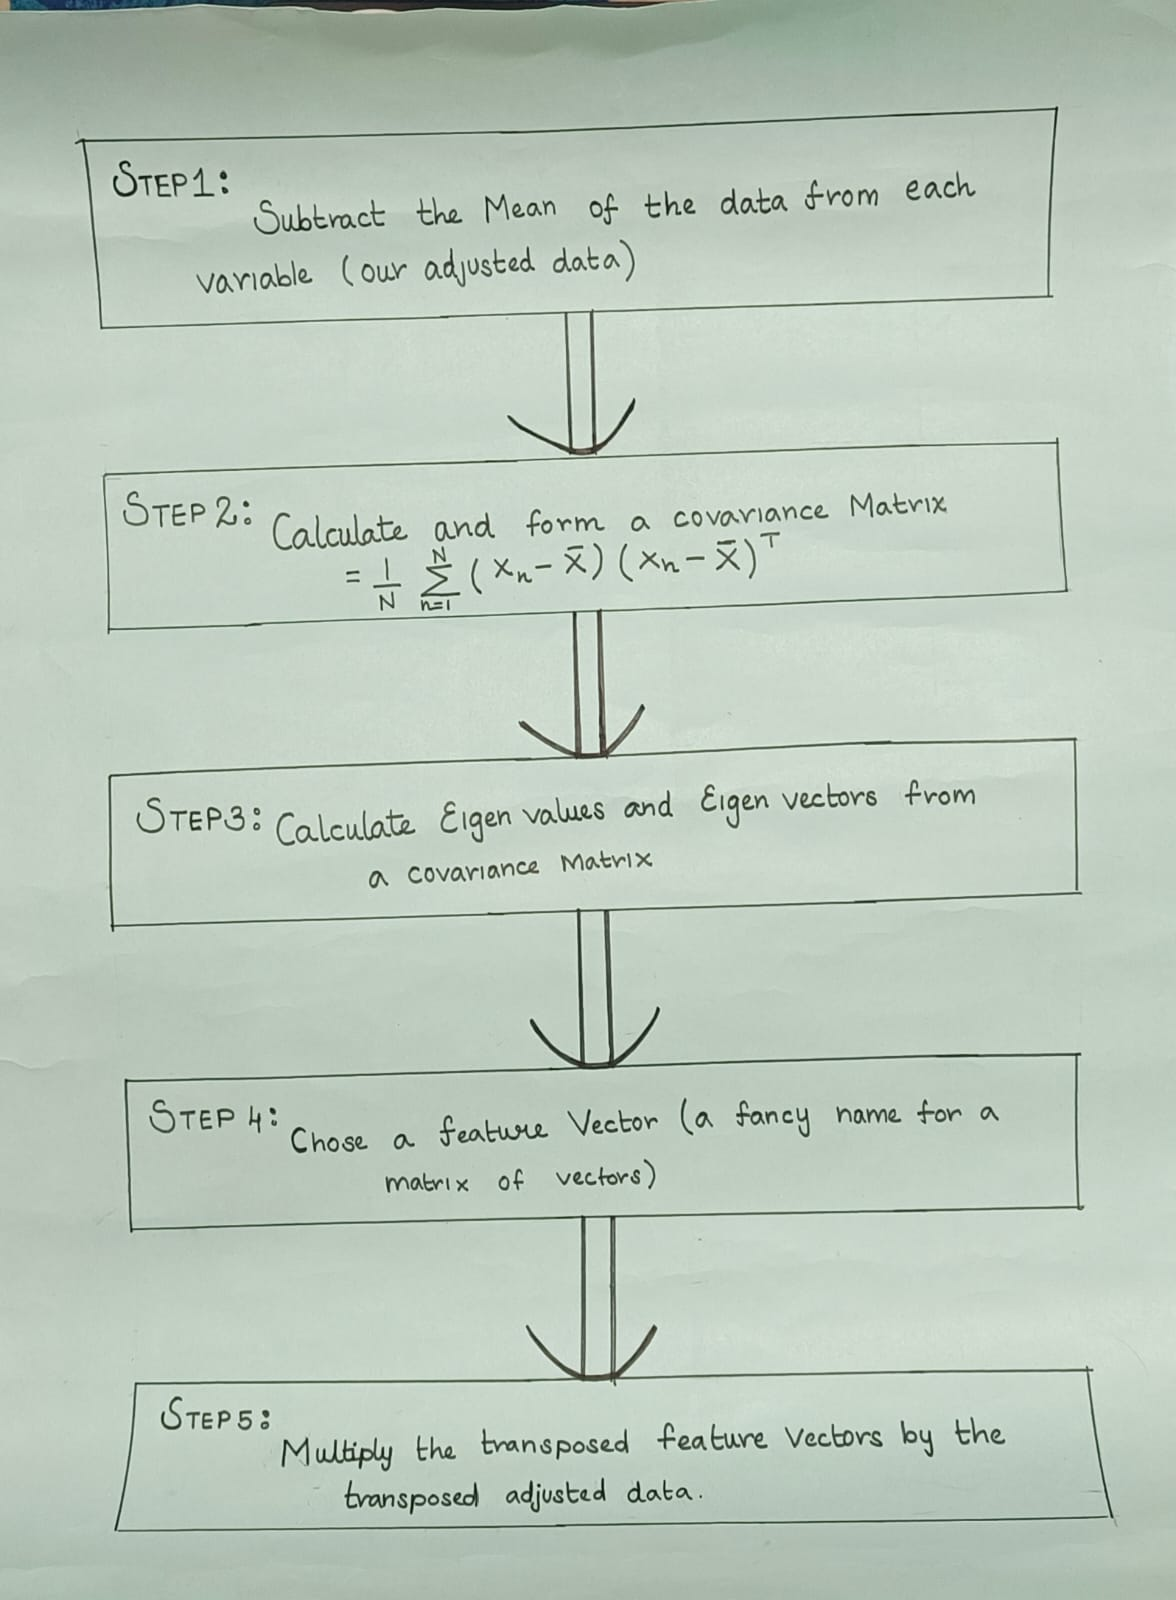 STEP1:
Subtract the Mean of the data from each
variable (our adjusted data)
STEP 2: Calculate and form a covariance Matrix
= 1/N Σ_{n=1}^{N} (xₙ - x̄) (xₙ - x̄)ᵀ
STEP3: Calculate Eigen values and Eigen vectors from
a covariance Matrix
STEP 4: Chose a feature Vector (a fancy name for a
matrix of vectors)
STEP5:
Multiply the transposed feature Vectors by the
transposed adjusted data.